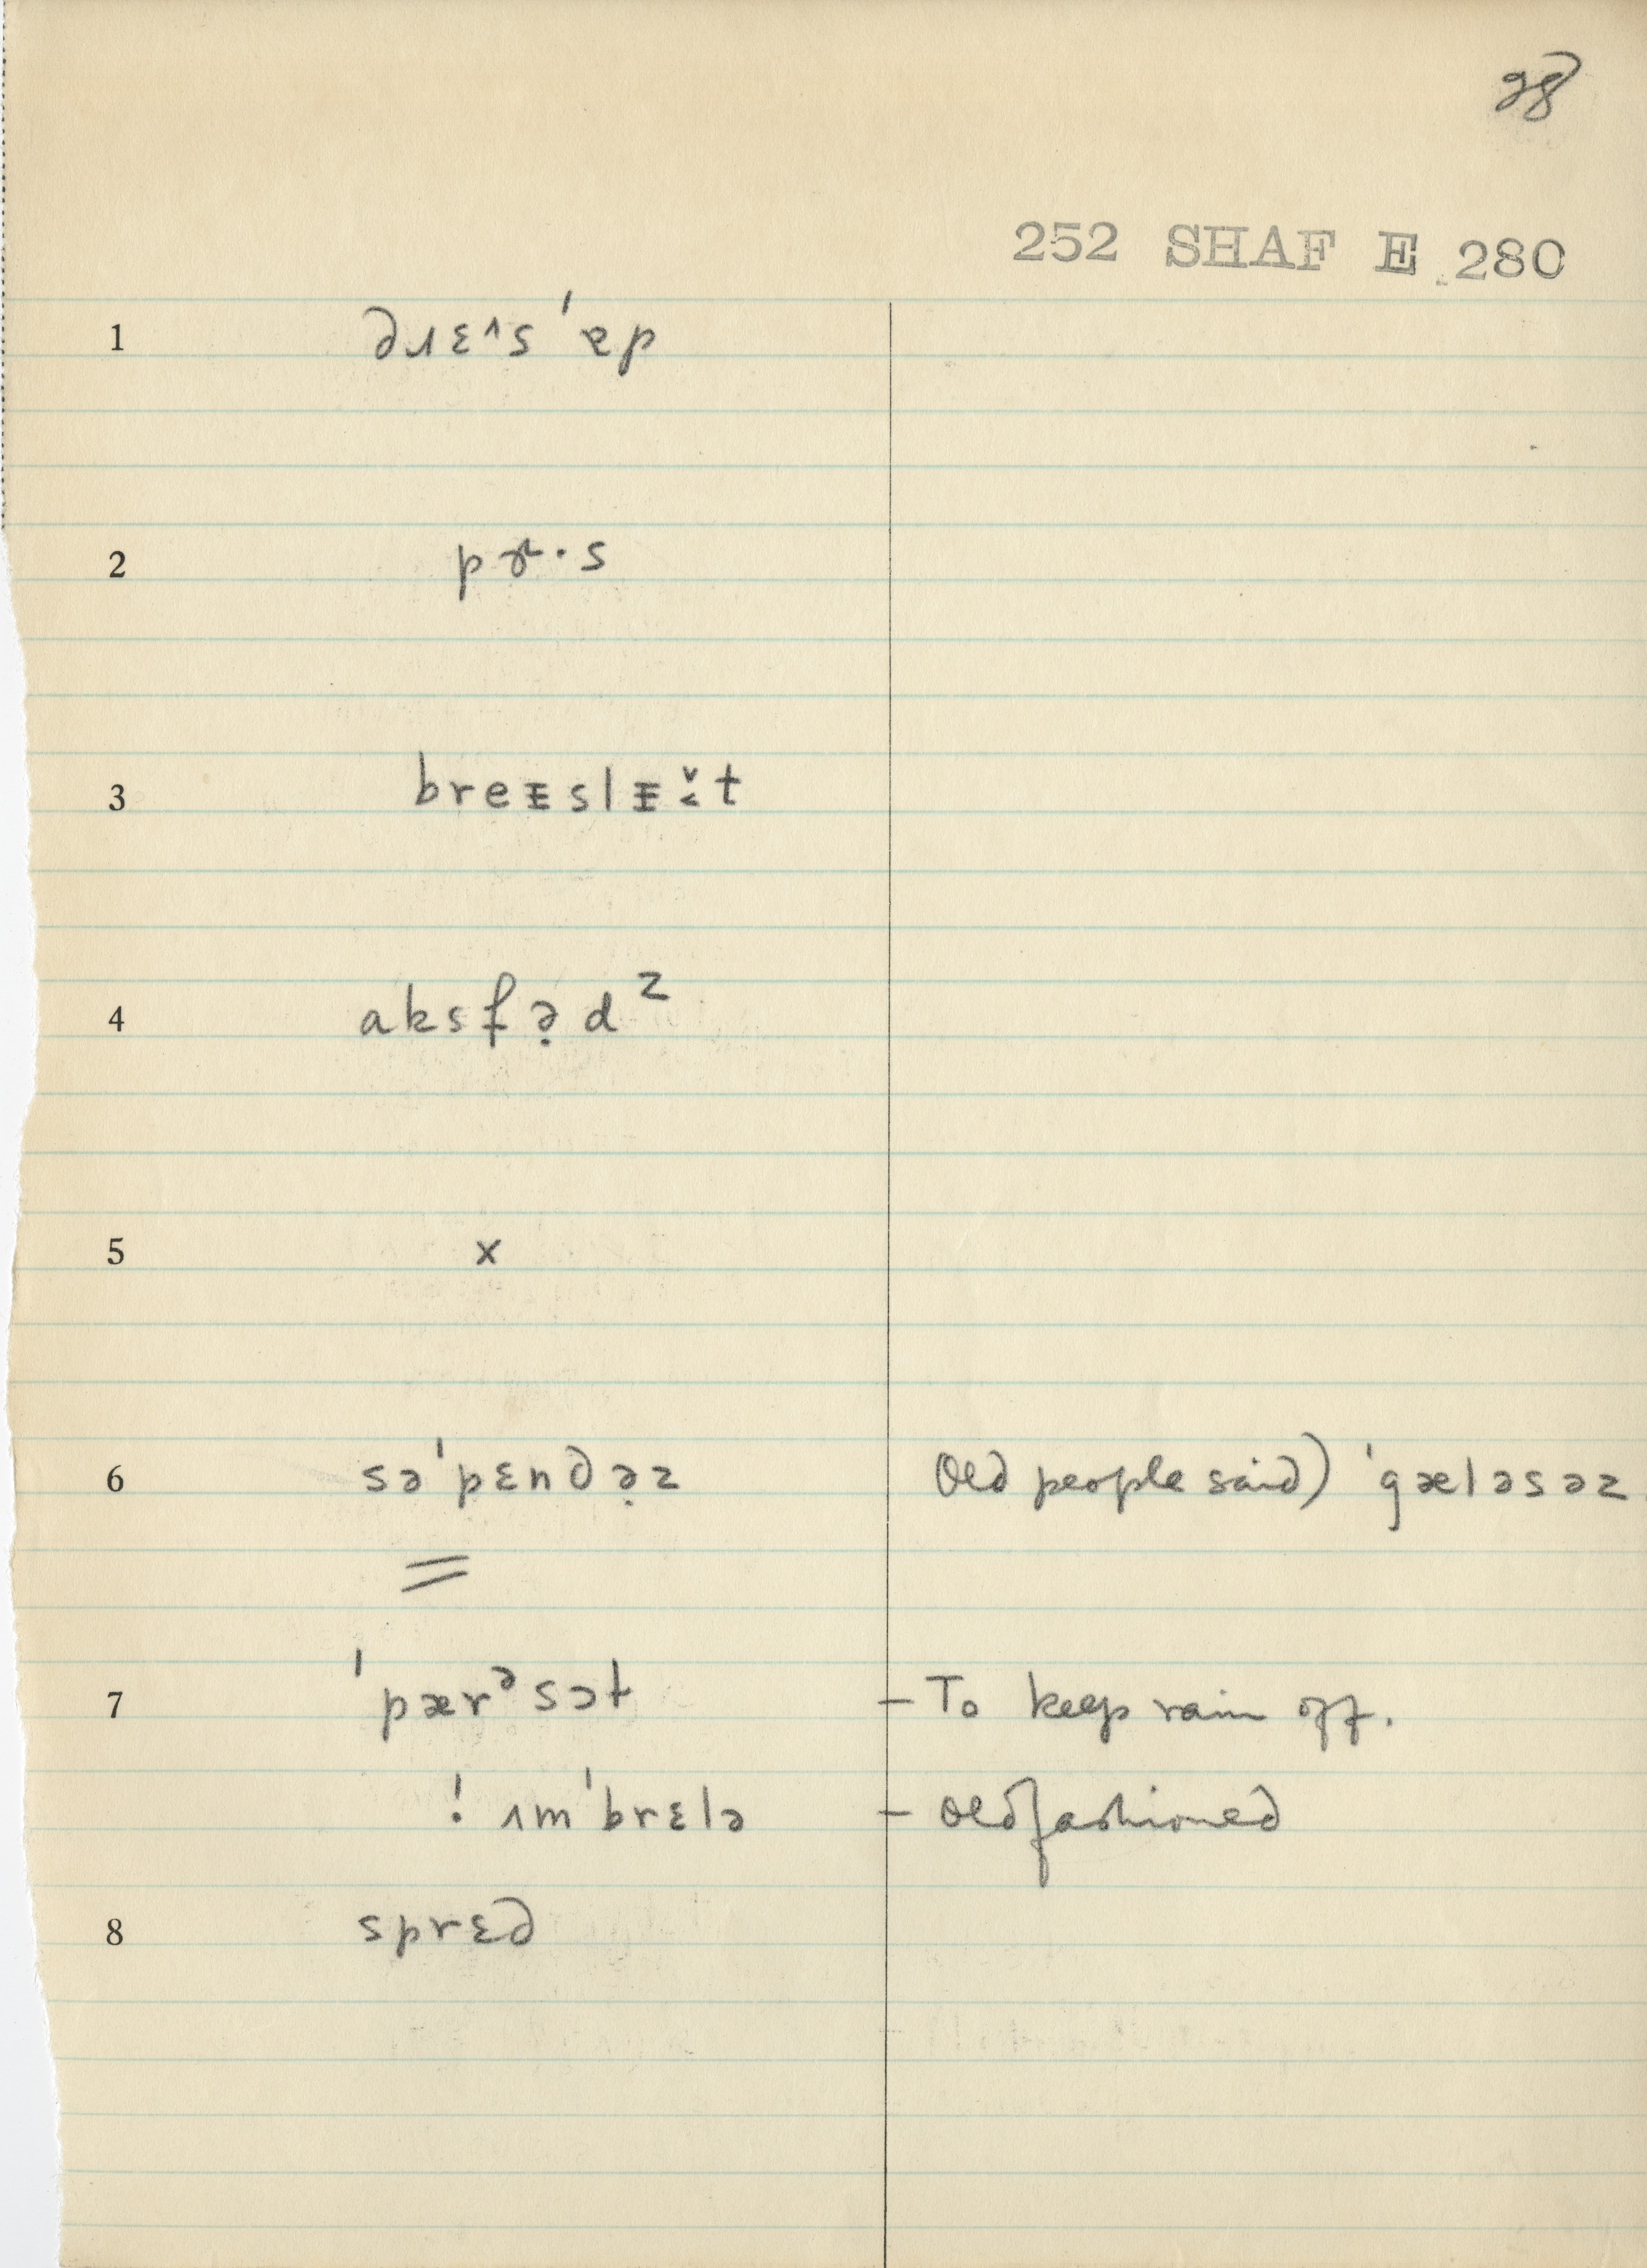 28
252 SHAF E 280
1 dɹɛ^s 'ɐp
2 pɝ·s
3 breᵻslᵻt
4 aksfə̣dᶻ
5 x
6 sə'pɛndə̣z Old people said) 'gæləsəz
=
7 'pærᵊsɔt – To keep rain off.
! ʌm'brɛlə – Old fashioned
8 sprɛd